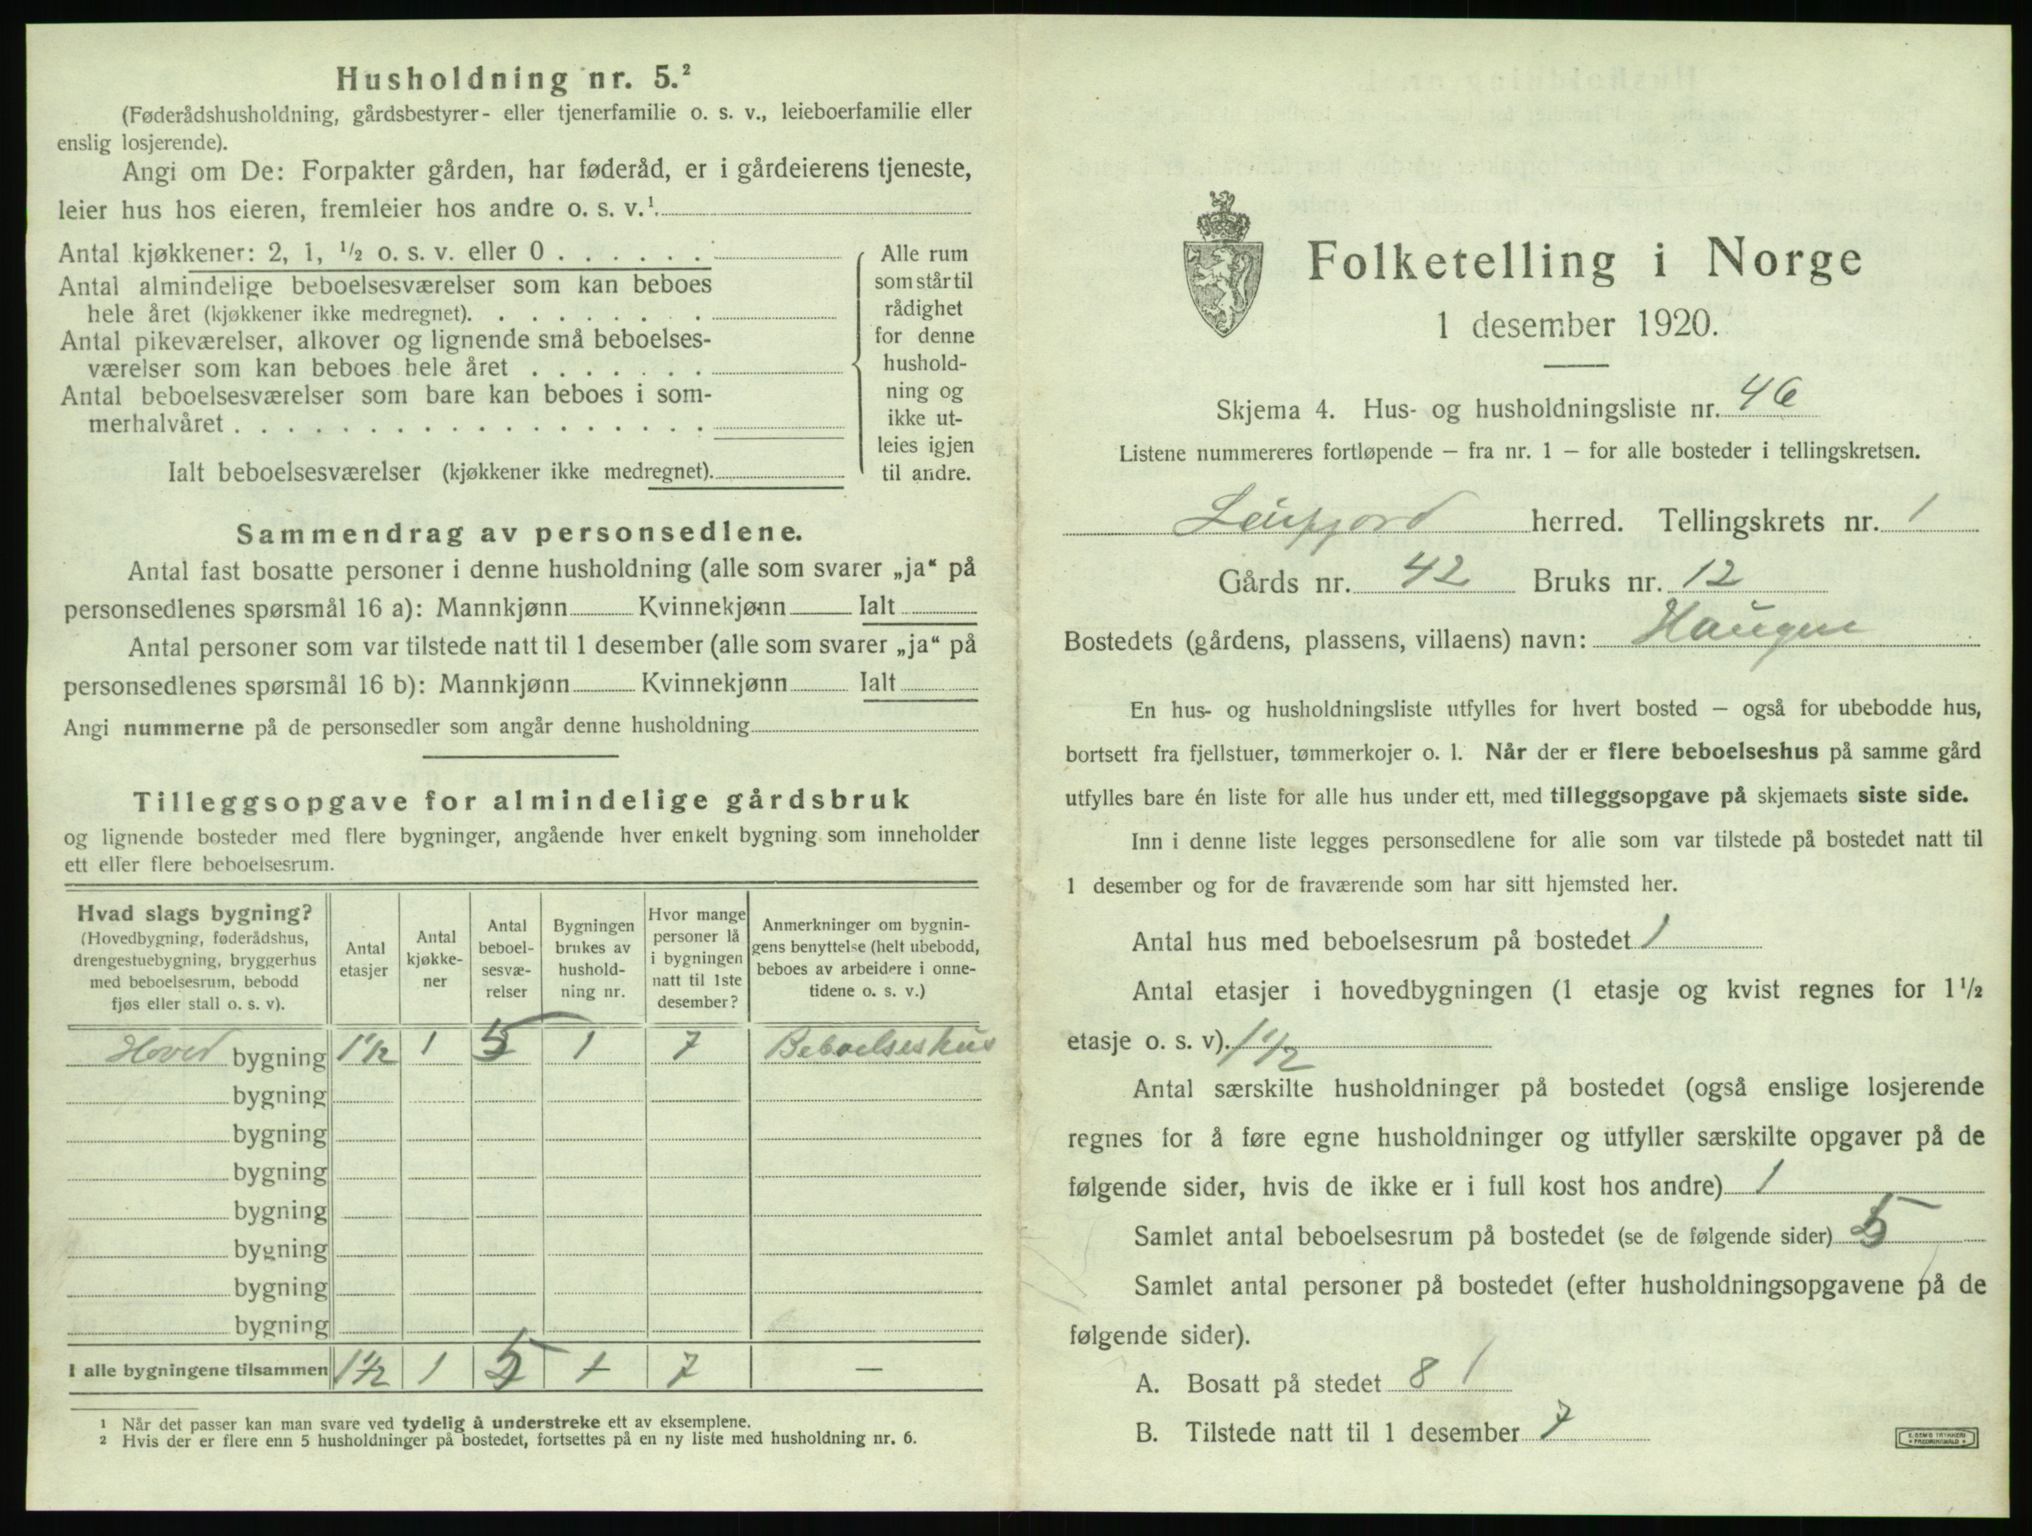 Husholdning nr. 5.²
(Føderådshusholdning, gårdsbestyrer- eller tjenerfamilie o. s. v., leieboerfamilie eller
enslig losjerende).
Angi om De: Forpakter gården, har føderåd, er i gårdeierens tjeneste,
leier hus hos eieren, fremleier hos andre o. s. v.¹
Antal kjøkkener: 2, 1, ½ o. s. v. eller 0 . . . . . .
Antal almindelige beboelsesværelser som kan beboes
hele året (kjøkkener ikke medregnet). . . . . . . . .
Antal pikeværelser, alkover og lignende små beboelses-
værelser som kan beboes hele året . . . . . . .
Antal beboelsesværelser som bare kan beboes i som-
merhalvåret . . . . . . . . . . . . . . . . . .
Ialt beboelsesværelser (kjøkkener ikke medregnet).
Alle rum
som står til
rådighet
for denne
hushold-
ning og
ikke ut-
leies igjen
til andre.
Sammendrag av personsedlene.
Antal fast bosatte personer i denne husholdning (alle som svarer „ja“ på
personsedlenes spørsmål 16 a): Mannkjønn Kvinnekjønn Ialt
Antal personer som var tilstede natt til 1 desember (alle som svarer „ja“ på
personsedlenes spørsmål 16 b): Mannkjønn Kvinnekjønn Ialt
Angi nummerne på de personsedler som angår denne husholdning
Tilleggsopgave for almindelige gårdsbruk
og lignende bosteder med flere bygninger, angående hver enkelt bygning som inneholder
ett eller flere beboelsesrum.
Hvad slags bygning?
(Hovedbygning, føderådshus,
drengestuebygning, bryggerhus
med beboelsesrum, bebodd
fjøs eller stall o. s. v).
Antal
etasjer
Antal
kjøkke-
ner
Antal
beboel-
sesvæ-
relser
Bygningen
brukes av
hushold-
ning nr.
Hvor mange
personer lå
i bygningen
natt til 1ste
desember?
Anmerkninger om bygnin-
gens benyttelse (helt ubebodd,
beboes av arbeidere i onne-
tidene o. s. v.)
Hoved bygning 1½ 1 5 1 7 Beboelseshus
bygning
bygning
bygning
bygning
bygning
bygning
bygning
I alle bygningene tilsammen 1½ 1 5 1 7 —
¹ Når det passer kan man svare ved tydelig å understreke ett av eksemplene.
² Hvis der er flere enn 5 husholdninger på bostedet, fortsettes på en ny liste med husholdning nr. 6.
Folketelling i Norge
1 desember 1920.
Skjema 4. Hus- og husholdningsliste nr. 46
Listene nummereres fortløpende — fra nr. 1 — for alle bosteder i tellingskretsen.
Leirfjord herred. Tellingskrets nr. 1
Gårds nr. 42 Bruks nr. 12
Bostedets (gårdens, plassens, villaens) navn: Haugen
En hus- og husholdningsliste utfylles for hvert bosted — også for ubebodde hus,
bortsett fra fjellstuer, tømmerkojer o. l. Når der er flere beboelseshus på samme gård
utfylles bare én liste for alle hus under ett, med tilleggsopgave på skjemaets siste side.
Inn i denne liste legges personsedlene for alle som var tilstede på bostedet natt til
1 desember og for de fraværende som har sitt hjemsted her.
Antal hus med beboelsesrum på bostedet 1
Antal etasjer i hovedbygningen (1 etasje og kvist regnes for 1½
etasje o. s. v). 1½
Antal særskilte husholdninger på bostedet (også enslige losjerende
regnes for å føre egne husholdninger og utfyller særskilte opgaver på de
følgende sider, hvis de ikke er i full kost hos andre) 1
Samlet antal beboelsesrum på bostedet (se de følgende sider) 5
Samlet antal personer på bostedet (efter husholdningsopgavene på de
følgende sider).
A. Bosatt på stedet 8 1
B. Tilstede natt til 1 desember 7